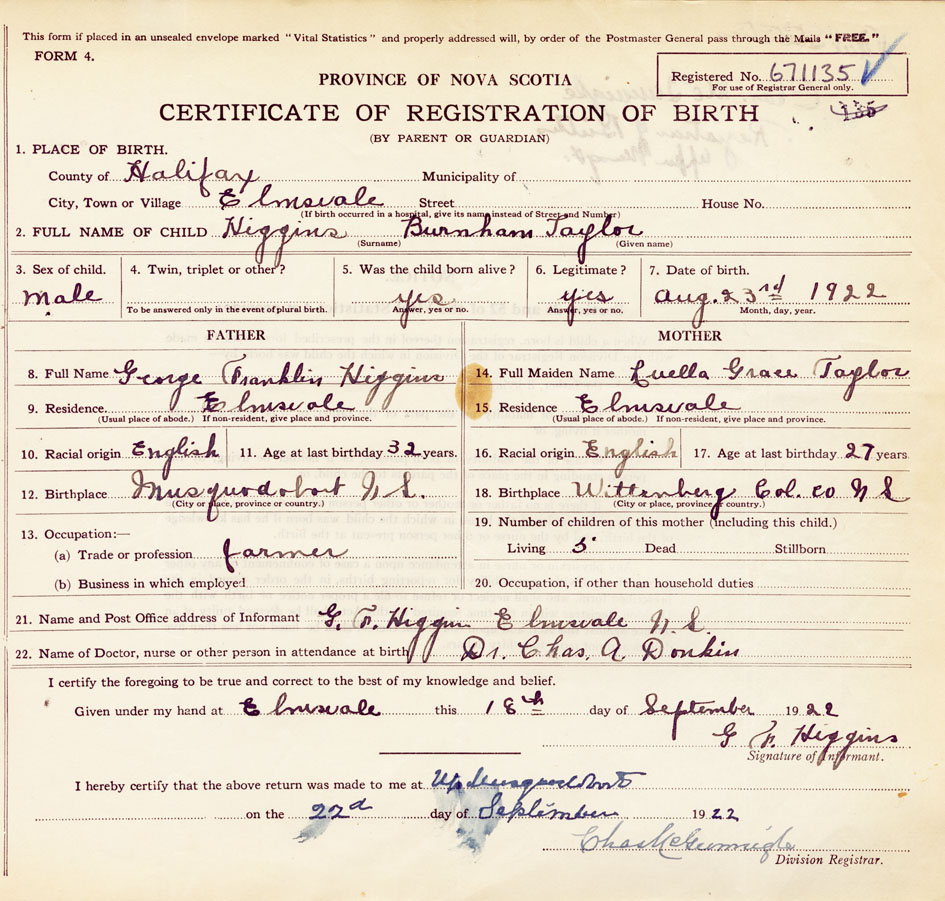 This form if placed in an unsealed envelope marked "Vital Statistics" and properly addressed will, by order of the Postmaster General pass through the Mails "FREE."
FORM 4.
PROVINCE OF NOVA SCOTIA
Registered No. 671135
For use of Registrar General only.
CERTIFICATE OF REGISTRATION OF BIRTH
135
(BY PARENT OR GUARDIAN)
1. PLACE OF BIRTH.
County of Halifax Municipality of
City, Town or Village Elmsvale Street House No.
(If birth occurred in a hospital, give its name instead of Street and Number)
2. FULL NAME OF CHILD Higgins Burnham Taylor
(Surname) (Given name)
3. Sex of child. 4. Twin, triplet or other? 5. Was the child born alive? 6. Legitimate? 7. Date of birth.
Male yes yes Aug. 23rd 1922
To be answered only in the event of plural birth. Answer, yes or no. Answer, yes or no. Month, day, year.
FATHER MOTHER
8. Full Name George Franklin Higgins 14. Full Maiden Name Luella Grace Taylor
9. Residence Elmsvale 15. Residence Elmsvale
(Usual place of abode.) If non-resident, give place and province. (Usual place of abode.) If non-resident, give place and province.
10. Racial origin English 11. Age at last birthday 32 years. 16. Racial origin English 17. Age at last birthday 27 years
12. Birthplace Musquodobort N S. 18. Birthplace Wittenberg Col. co N S
(City or place, province or country.) (City or place, province or country.)
13. Occupation:— 19. Number of children of this mother (including this child.)
(a) Trade or profession farmer Living 5 Dead Stillborn
(b) Business in which employed 20. Occupation, if other than household duties
21. Name and Post Office address of Informant G. F. Higgins Elmsvale N. S.
22. Name of Doctor, nurse or other person in attendance at birth Dr. Chas. A. Donkin
I certify the foregoing to be true and correct to the best of my knowledge and belief.
Given under my hand at Elmsvale this 18th day of September 1922
G F. Higgins
Signature of Informant.
I hereby certify that the above return was made to me at Up Musquodobort
on the 22d day of September 1922
Chas
Division Registrar.